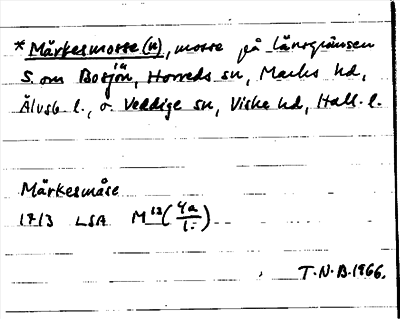 *Märkesmosse(n), mosse på länsgränsen
S om Bosjön, Horreds sn, Marks hd,
Älvsb. l., o. Veddige sn, Viske hd, Hall. l.
Märkesmåse
1713 LSA M12(4a/1:-)
T.N.B. 1966.